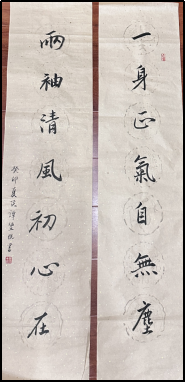 一身正氣自無塵
兩袖清風初心在
癸卯夏